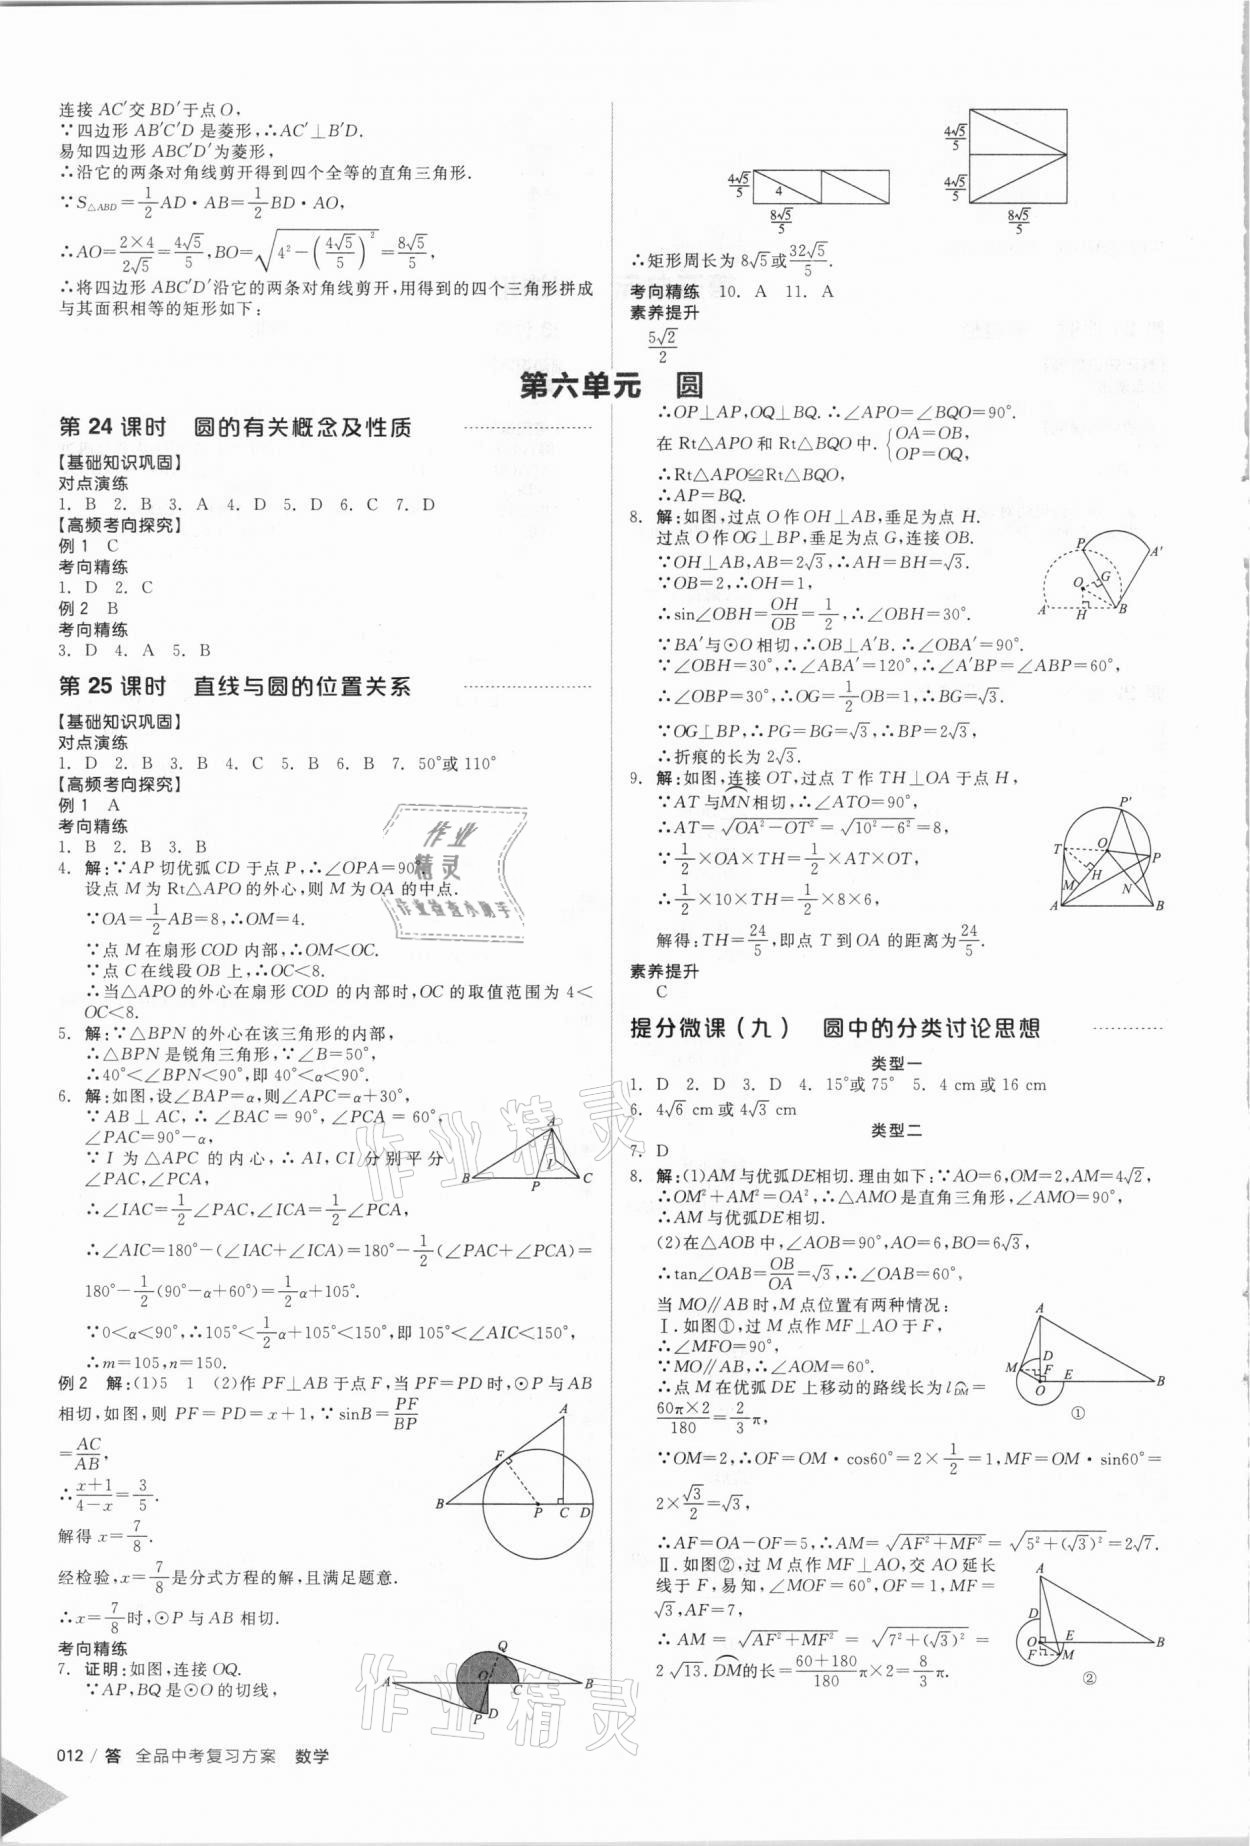 连接 AC′交 BD′于点 O,
∵四边形 AB′C′D 是菱形,∴AC′⊥B′D.
易知四边形 ABC′D′为菱形,
∴沿它的两条对角线剪开得到四个全等的直角三角形.
∵S△ABD=1/2 AD·AB=1/2 BD·AO,
∴AO=2×4/2√5=4√5/5,BO=√(4²-(4√5/5)²)=8√5/5,
∴将四边形 ABC′D′沿它的两条对角线剪开,用得到的四个三角形拼成
与其面积相等的矩形如下:
4√5/5 4 8√5/5
4√5/5 4√5/5 8√5/5
∴矩形周长为 8√5或32√5/5.
考向精练 10. A 11. A
素养提升
5√2/2
第六单元 圆
第 24 课时 圆的有关概念及性质
【基础知识巩固】
对点演练
1. B 2. B 3. A 4. D 5. D 6. C 7. D
【高频考向探究】
例 1 C
考向精练
1. D 2. C
例 2 B
考向精练
3. D 4. A 5. B
第 25 课时 直线与圆的位置关系
【基础知识巩固】
对点演练
1. D 2. B 3. B 4. C 5. B 6. B 7. 50°或 110°
【高频考向探究】
例 1 A
考向精练
1. B 2. B 3. B
4. 解:∵AP 切优弧 CD 于点 P,∴∠OPA=90°.
设点 M 为 Rt△APO 的外心,则 M 为 OA 的中点.
∵OA=1/2 AB=8,∴OM=4.
∵点 M 在扇形 COD 内部,∴OM<OC.
∵点 C 在线段 OB 上,∴OC<8.
∴当△APO 的外心在扇形 COD 的内部时,OC 的取值范围为 4<
OC<8.
5. 解:∵△BPN 的外心在该三角形的内部,
∴△BPN 是锐角三角形,∵∠B=50°,
∴40°<∠BPN<90°,即 40°<α<90°.
6. 解:如图,设∠BAP=α,则∠APC=α+30°,
∵AB⊥AC,∴∠BAC=90°,∠PCA=60°,
∠PAC=90°-α,
∵I 为△APC 的内心,∴AI,CI 分别平分
∠PAC,∠PCA,
∴∠IAC=1/2∠PAC,∠ICA=1/2∠PCA,
A I B P C
∴∠AIC=180°-(∠IAC+∠ICA)=180°-1/2(∠PAC+∠PCA)=
180°-1/2(90°-α+60°)=1/2α+105°.
∵0<α<90°,∴105°<1/2α+105°<150°,即 105°<∠AIC<150°,
∴m=105,n=150.
例 2 解:(1)5 1 (2)作 PF⊥AB 于点 F,当 PF=PD 时,⊙P 与 AB
相切,如图,则 PF=PD=x+1,∵sinB=PF/BP
=AC/AB,
∴x+1/4-x=3/5.
解得 x=7/8.
A F B P C D
经检验,x=7/8是分式方程的解,且满足题意.
∴x=7/8时,⊙P 与 AB 相切.
考向精练
7. 证明:如图,连接 OQ.
∵AP,BQ 是⊙O 的切线,
Q A O C B P D
∴OP⊥AP,OQ⊥BQ.∴∠APO=∠BQO=90°.
在 Rt△APO 和 Rt△BQO 中.{OA=OB,
OP=OQ,
∴Rt△APO≌Rt△BQO,
∴AP=BQ.
8. 解:如图,过点 O 作 OH⊥AB,垂足为点 H.
过点 O 作 OG⊥BP,垂足为点 G,连接 OB.
∵OH⊥AB,AB=2√3,∴AH=BH=√3.
∵OB=2,∴OH=1,
∴sin∠OBH=OH/OB=1/2,∴∠OBH=30°.
P A′ O G A H B
∵BA′与⊙O 相切,∴OB⊥A′B.∴∠OBA′=90°.
∵∠OBH=30°,∴∠ABA′=120°,∴∠A′BP=∠ABP=60°,
∴∠OBP=30°,∴OG=1/2 OB=1,∴BG=√3.
∵OG⊥BP,∴PG=BG=√3,∴BP=2√3,
∴折痕的长为 2√3.
9. 解:如图,连接 OT,过点 T 作 TH⊥OA 于点 H,
∵AT 与MN相切,∴∠ATO=90°,
∴AT=√(OA²-OT²)=√(10²-6²)=8,
∵1/2×OA×TH=1/2×AT×OT,
∴1/2×10×TH=1/2×8×6,
解得:TH=24/5,即点 T 到 OA 的距离为24/5.
P′ T O P H M N A B
素养提升
C
提分微课(九) 圆中的分类讨论思想
类型一
1. D 2. D 3. D 4. 15°或 75° 5. 4 cm 或 16 cm
6. 4√6 cm 或 4√3 cm
类型二
7. D
8. 解:(1)AM 与优弧DE相切.理由如下:∵AO=6,OM=2,AM=4√2,
∴OM²+AM²=OA²,∴△AMO 是直角三角形,∠AMO=90°,
∴AM 与优弧DE相切.
(2)在△AOB 中,∠AOB=90°,AO=6,BO=6√3,
∴tan∠OAB=OB/OA=√3,∴∠OAB=60°,
当 MO∥AB 时,M 点位置有两种情况:
Ⅰ.如图①,过 M 点作 MF⊥AO 于 F,
∴∠MFO=90°,
∵MO∥AB,∴∠AOM=60°.
∴点 M 在优弧 DE 上移动的路线长为 l DM=
60π×2/180=2/3π,
A D M F E O B ①
∵OM=2,∴OF=OM·cos60°=2×1/2=1,MF=OM·sin60°=
2×√3/2=√3,
∴AF=OA-OF=5,∴AM=√(AF²+MF²)=√(5²+(√3)²)=2√7.
Ⅱ.如图②,过 M 点作 MF⊥AO,交 AO 延长
线于 F,易知,∠MOF=60°,OF=1,MF=
√3,AF=7,
∴AM=√(AF²+MF²)=√(7²+(√3)²)=
2√13.DM的长=60+180/180π×2=8/3π.
A D O E B F M ②
012/答 全品中考复习方案 数学
作业精灵
作业检查小助手
作业精灵
作业精灵